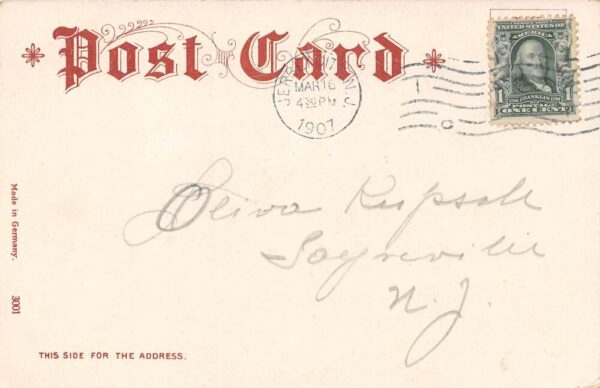 * Post Card *
UNITED STATES OF
AMERICA
1 1
POSTAGE
ONE CENT
N.J.
MAR 16
4 30 PM
1907
Sayreville
N. J.
Made in Germany.
3001
THIS SIDE FOR THE ADDRESS.